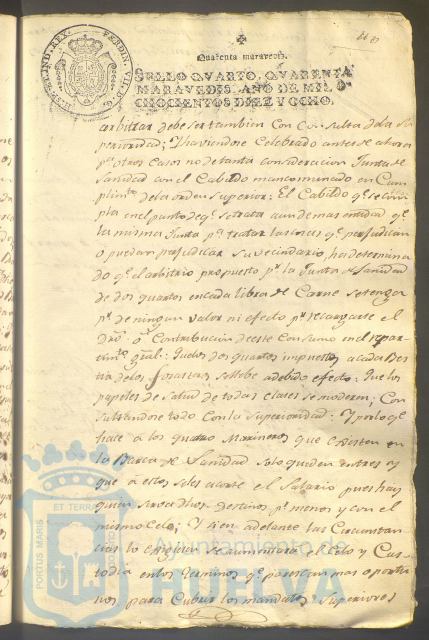 Quarenta maravedis.
SELLO QVARTO, QVARENTA
MARAVEDIS, AÑO DE MIL
OCHOCIENTOS DIEZ Y OCHO.
arbitrar debe ser tambien con consulta de la Su
perioridad; Y haviendose Celebrado antes de ahora
pr. otros casos no de tanta consideracion Junta de
Sanidad con el Cabildo mancomunado en Cum
plimto. de la orden Superior: El Cabildo qe. se
en el punto de qe. se trata aun de mas entidad qe.
la misma Junta pa. tratar las cosas qe. perjudican
o puedan perjudicar su vecindario, ha determina
do qe. el arbitrio propuesto pr. la Junta de Sanidad
de dos quartos en cada libra de Carne se tenga
pr. de ningun valor ni efecto pr. recargarse el
dro. o Contribucion de este Consumo en el repar
timto. gral: Que los dos quartos impuestos a cada Bes
tia de los forasteros se lleve a debido efecto: Que los
papeles de Salud de todas clases se moderen; Con
sultandose todo con la Superioridad: Y por lo qe.
hace a los quatro Marineros que existen en
la Barca de Sanidad solo queden en tres y
que a estos se les acorte el Salario pues hay
quien sirva dhos. destinos pr. menos y con el
mismo Celo; Y si en adelante las Circunstan
cias lo exigiesen se aumentara el Celo y Cus
todia en los terminos qe. parescan mas oportu
nos para Cubrir los mandatos Superiores
PORTUS MARIS
ET TERRAE
Ayuntamiento de
HUELVA